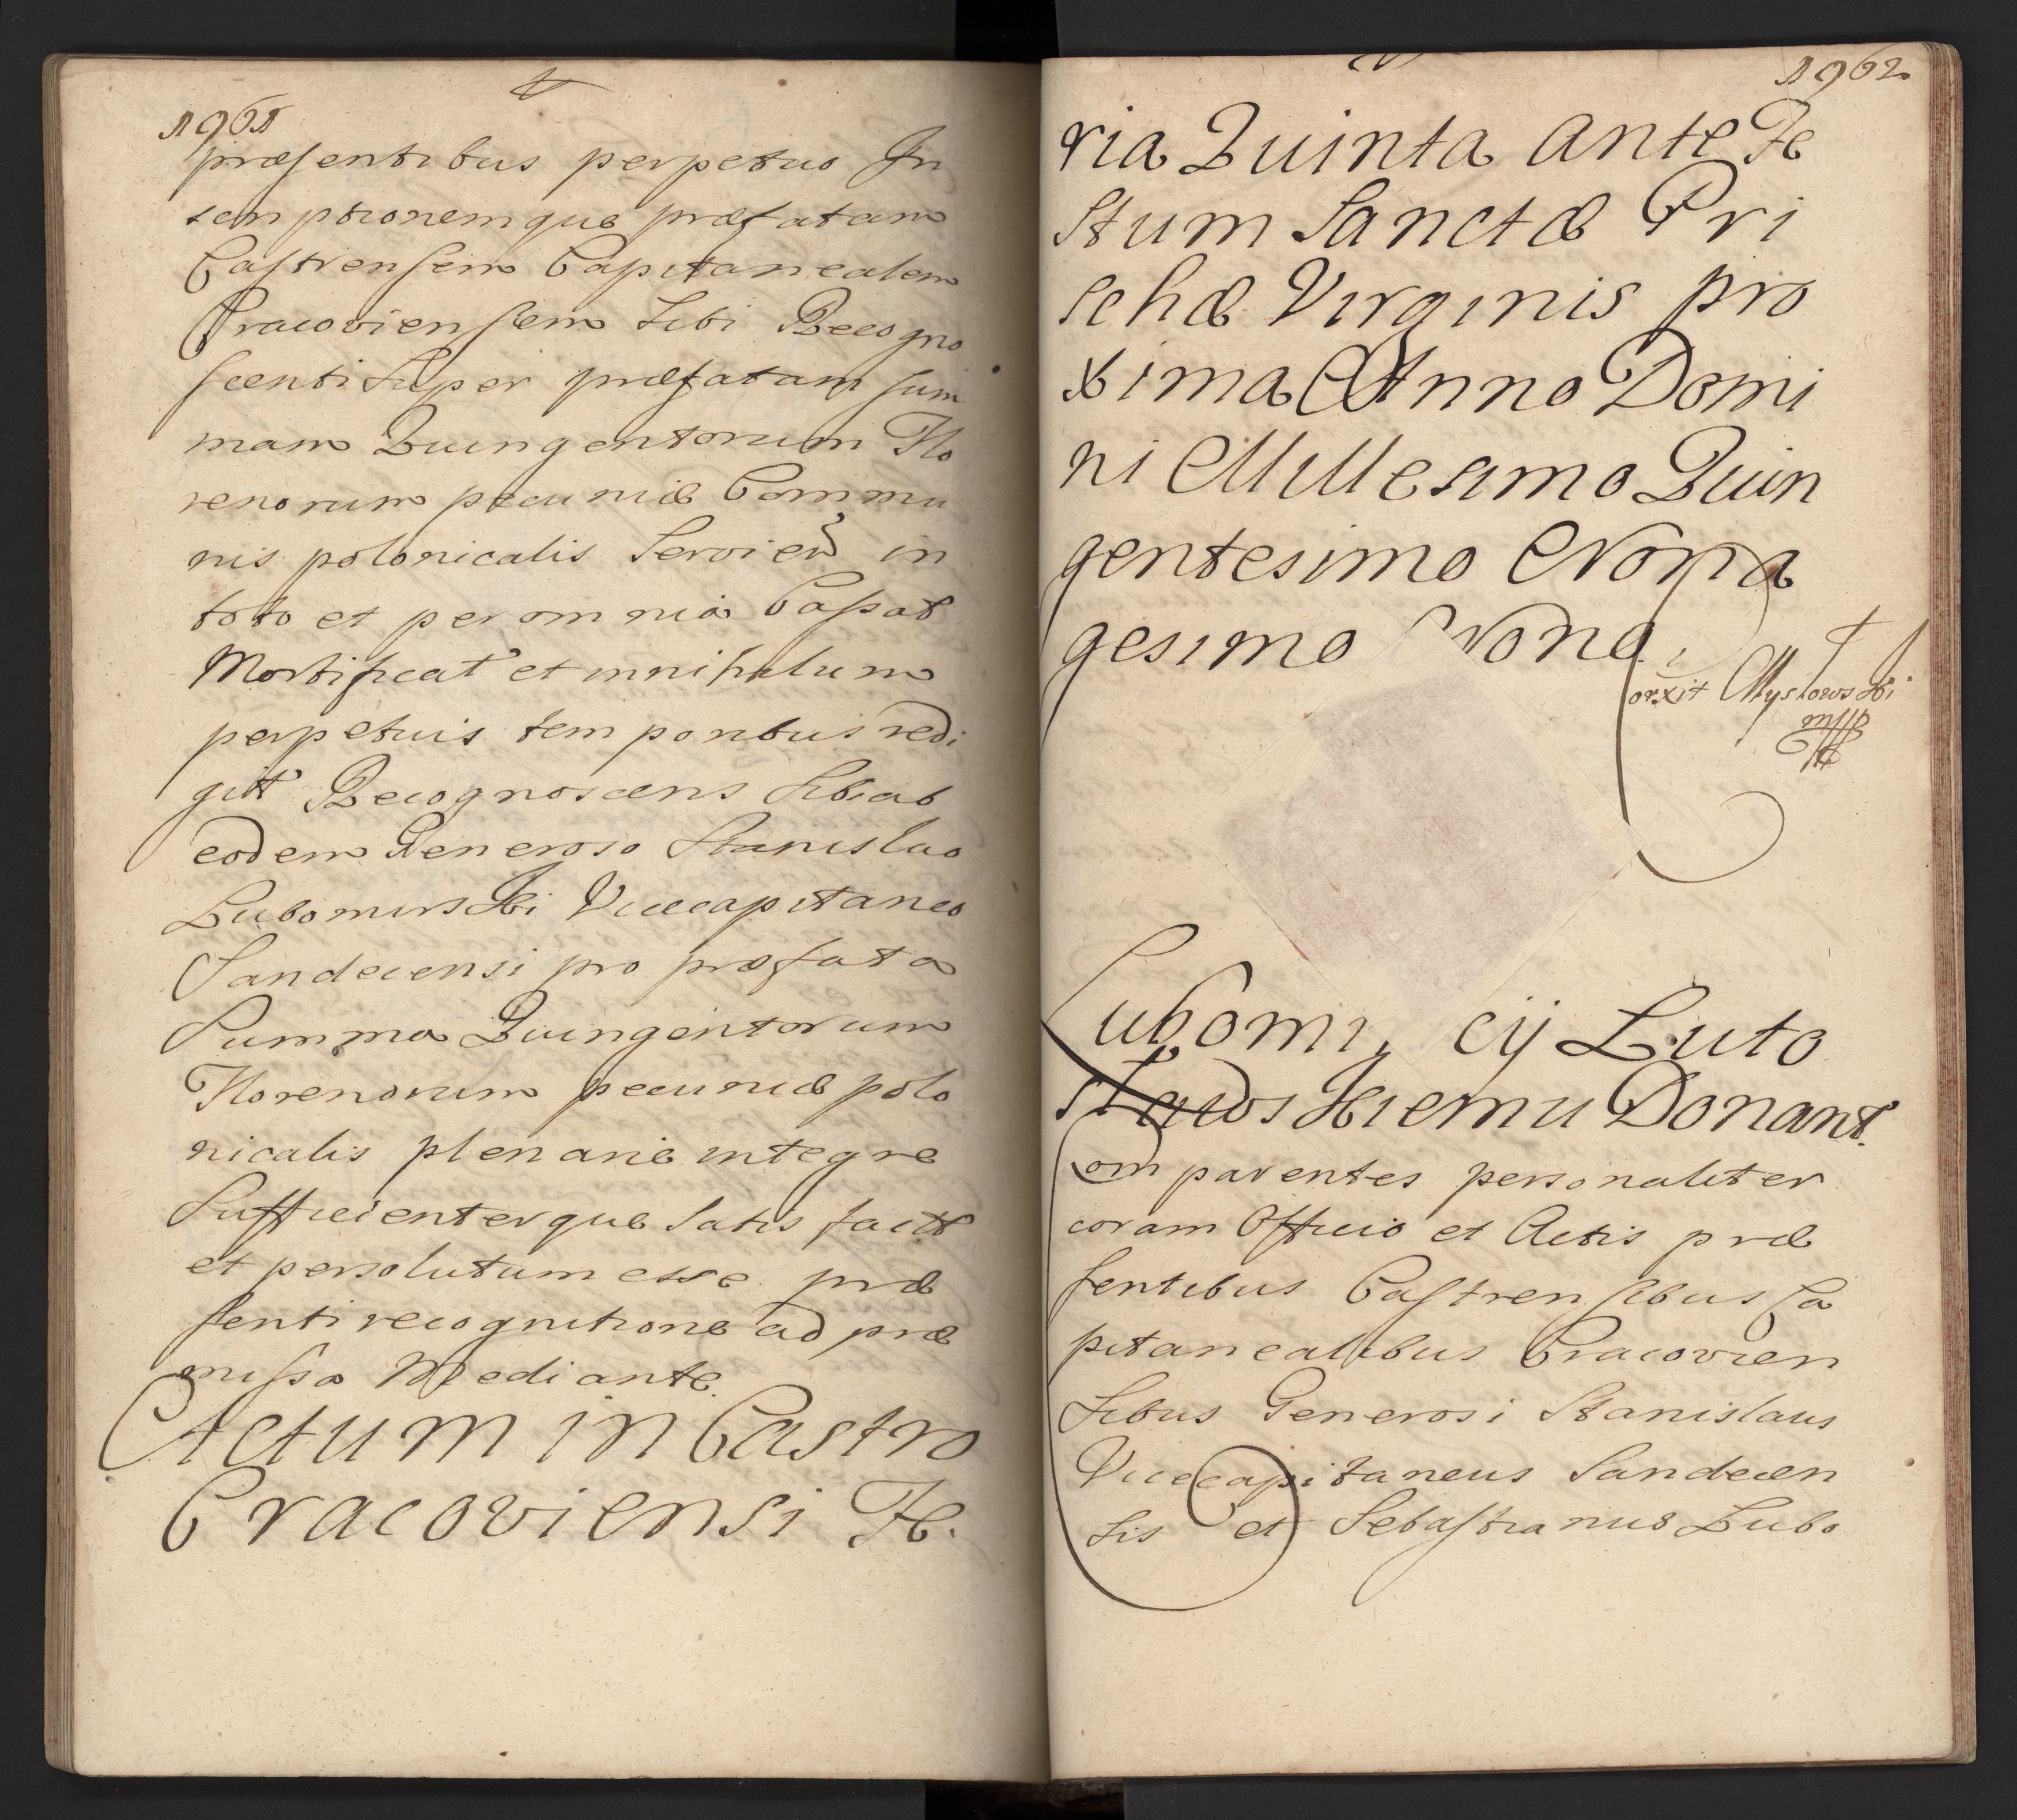 1961
præsentibus perpetuo In
scriptionemque præfatam
Castrensem Capitanealem
Cracoviensem Sibi Recogno
scenti Super præfatam sum
mam Quingentorum Flo
renorum pecuniæ Commu
nis polonicalis Servien in
toto et per omnia Cassat
Mortificat et in nihilum
perpetuis temporibus redi
git Recognoscens Sibi ab
eodem Generoso Stanislao
Lubomirski Vicecapitaneo
Sandecensi pro præfata
Summa Quingentorum
Florenorum pecuniæ polo
nicalis plenarie integre
Sufficienterque Satis fact
et persolutum esse præ
senti recognitione ad præ
missa Mediante.
Actum in Castro
Cracoviensi Fe.
1962
ria Quinta ante Fe
stum Sanctæ Pri
schæ Virginis pro
xima Anno Domi
ni Millesimo Quin
gentesimo Nona
gesimo Nono.
orxit Mysłowski
Lubomi cij Luto
sławskiemu Donant.
Comparentes personaliter
coram Officio et Actis præ
sentibus Castrensibus Ca
pitanealibus Cracovien
sibus Generosi Stanislaus
Vicecapitaneus Sandecen
sis et Sebastianus Lubo